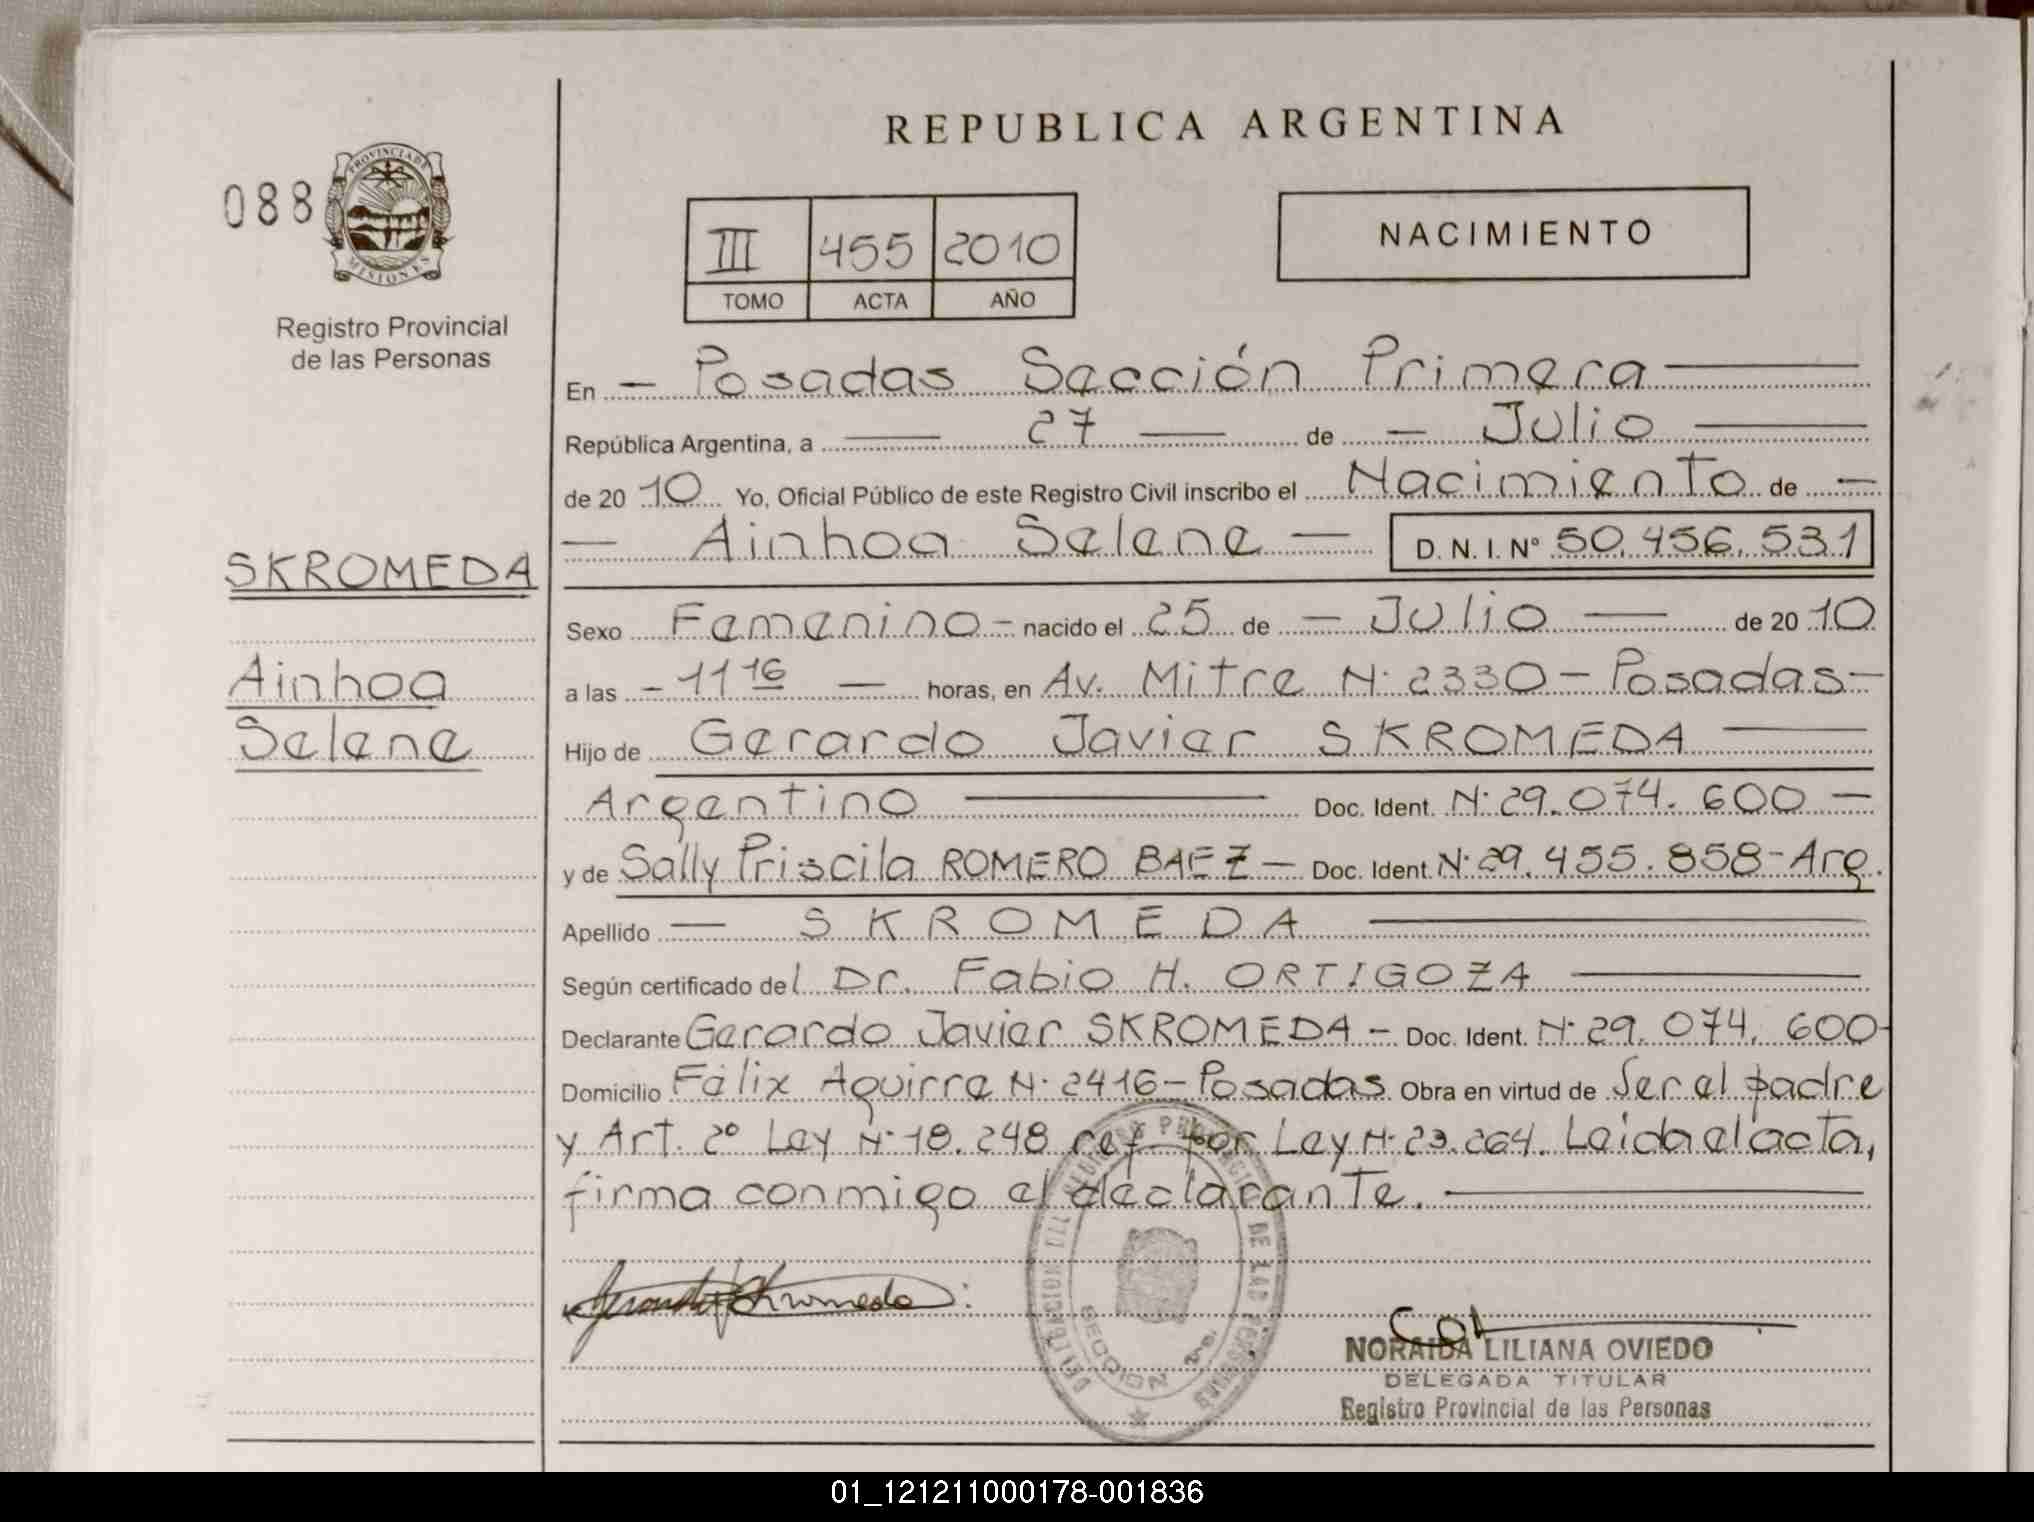 REPUBLICA ARGENTINA
088
PROVINCIA DE
MISIONES
Registro Provincial
de las Personas
III 455 2010
TOMO ACTA AÑO
NACIMIENTO
SKROMEDA
Ainhoa
Selene
En — Posadas Sección Primera —
República Argentina, a — 27 — de — Julio —
de 20 10 Yo, Oficial Público de este Registro Civil inscribo el Nacimiento de —
— Ainhoa Selene — D. N. I. Nº 50.456.531
Sexo Femenino - nacido el 25 de — Julio — de 20 10
a las - 11 16 — horas, en Av. Mitre N· 2330 - Posadas -
Hijo de Gerardo Javier SKROMEDA —
Argentino — Doc. Ident. N· 29.074.600 —
y de Sally Priscila ROMERO BAEZ — Doc. Ident. N· 29.455.858 - Arg.
Apellido — SKROMEDA —
Según certificado del Dr. Fabio H. ORTIGOZA —
Declarante Gerardo Javier SKROMEDA - Doc. Ident. N· 29.074.600 -
Domicilio Félix Aguirre N· 2416 - Posadas. Obra en virtud de Ser el padre
y Art. 2º Ley N· 18.248 ref. por Ley N· 23.264. Leida el acta,
firma conmigo el declarante. —
Gerardo J Skromeda
DELEGACION DEL REGISTRO PROVINCIAL DE LAS PERSONAS
SECCION 1ra.
NORAIDA LILIANA OVIEDO
DELEGADA TITULAR
Registro Provincial de las Personas
01_121211000178-001836